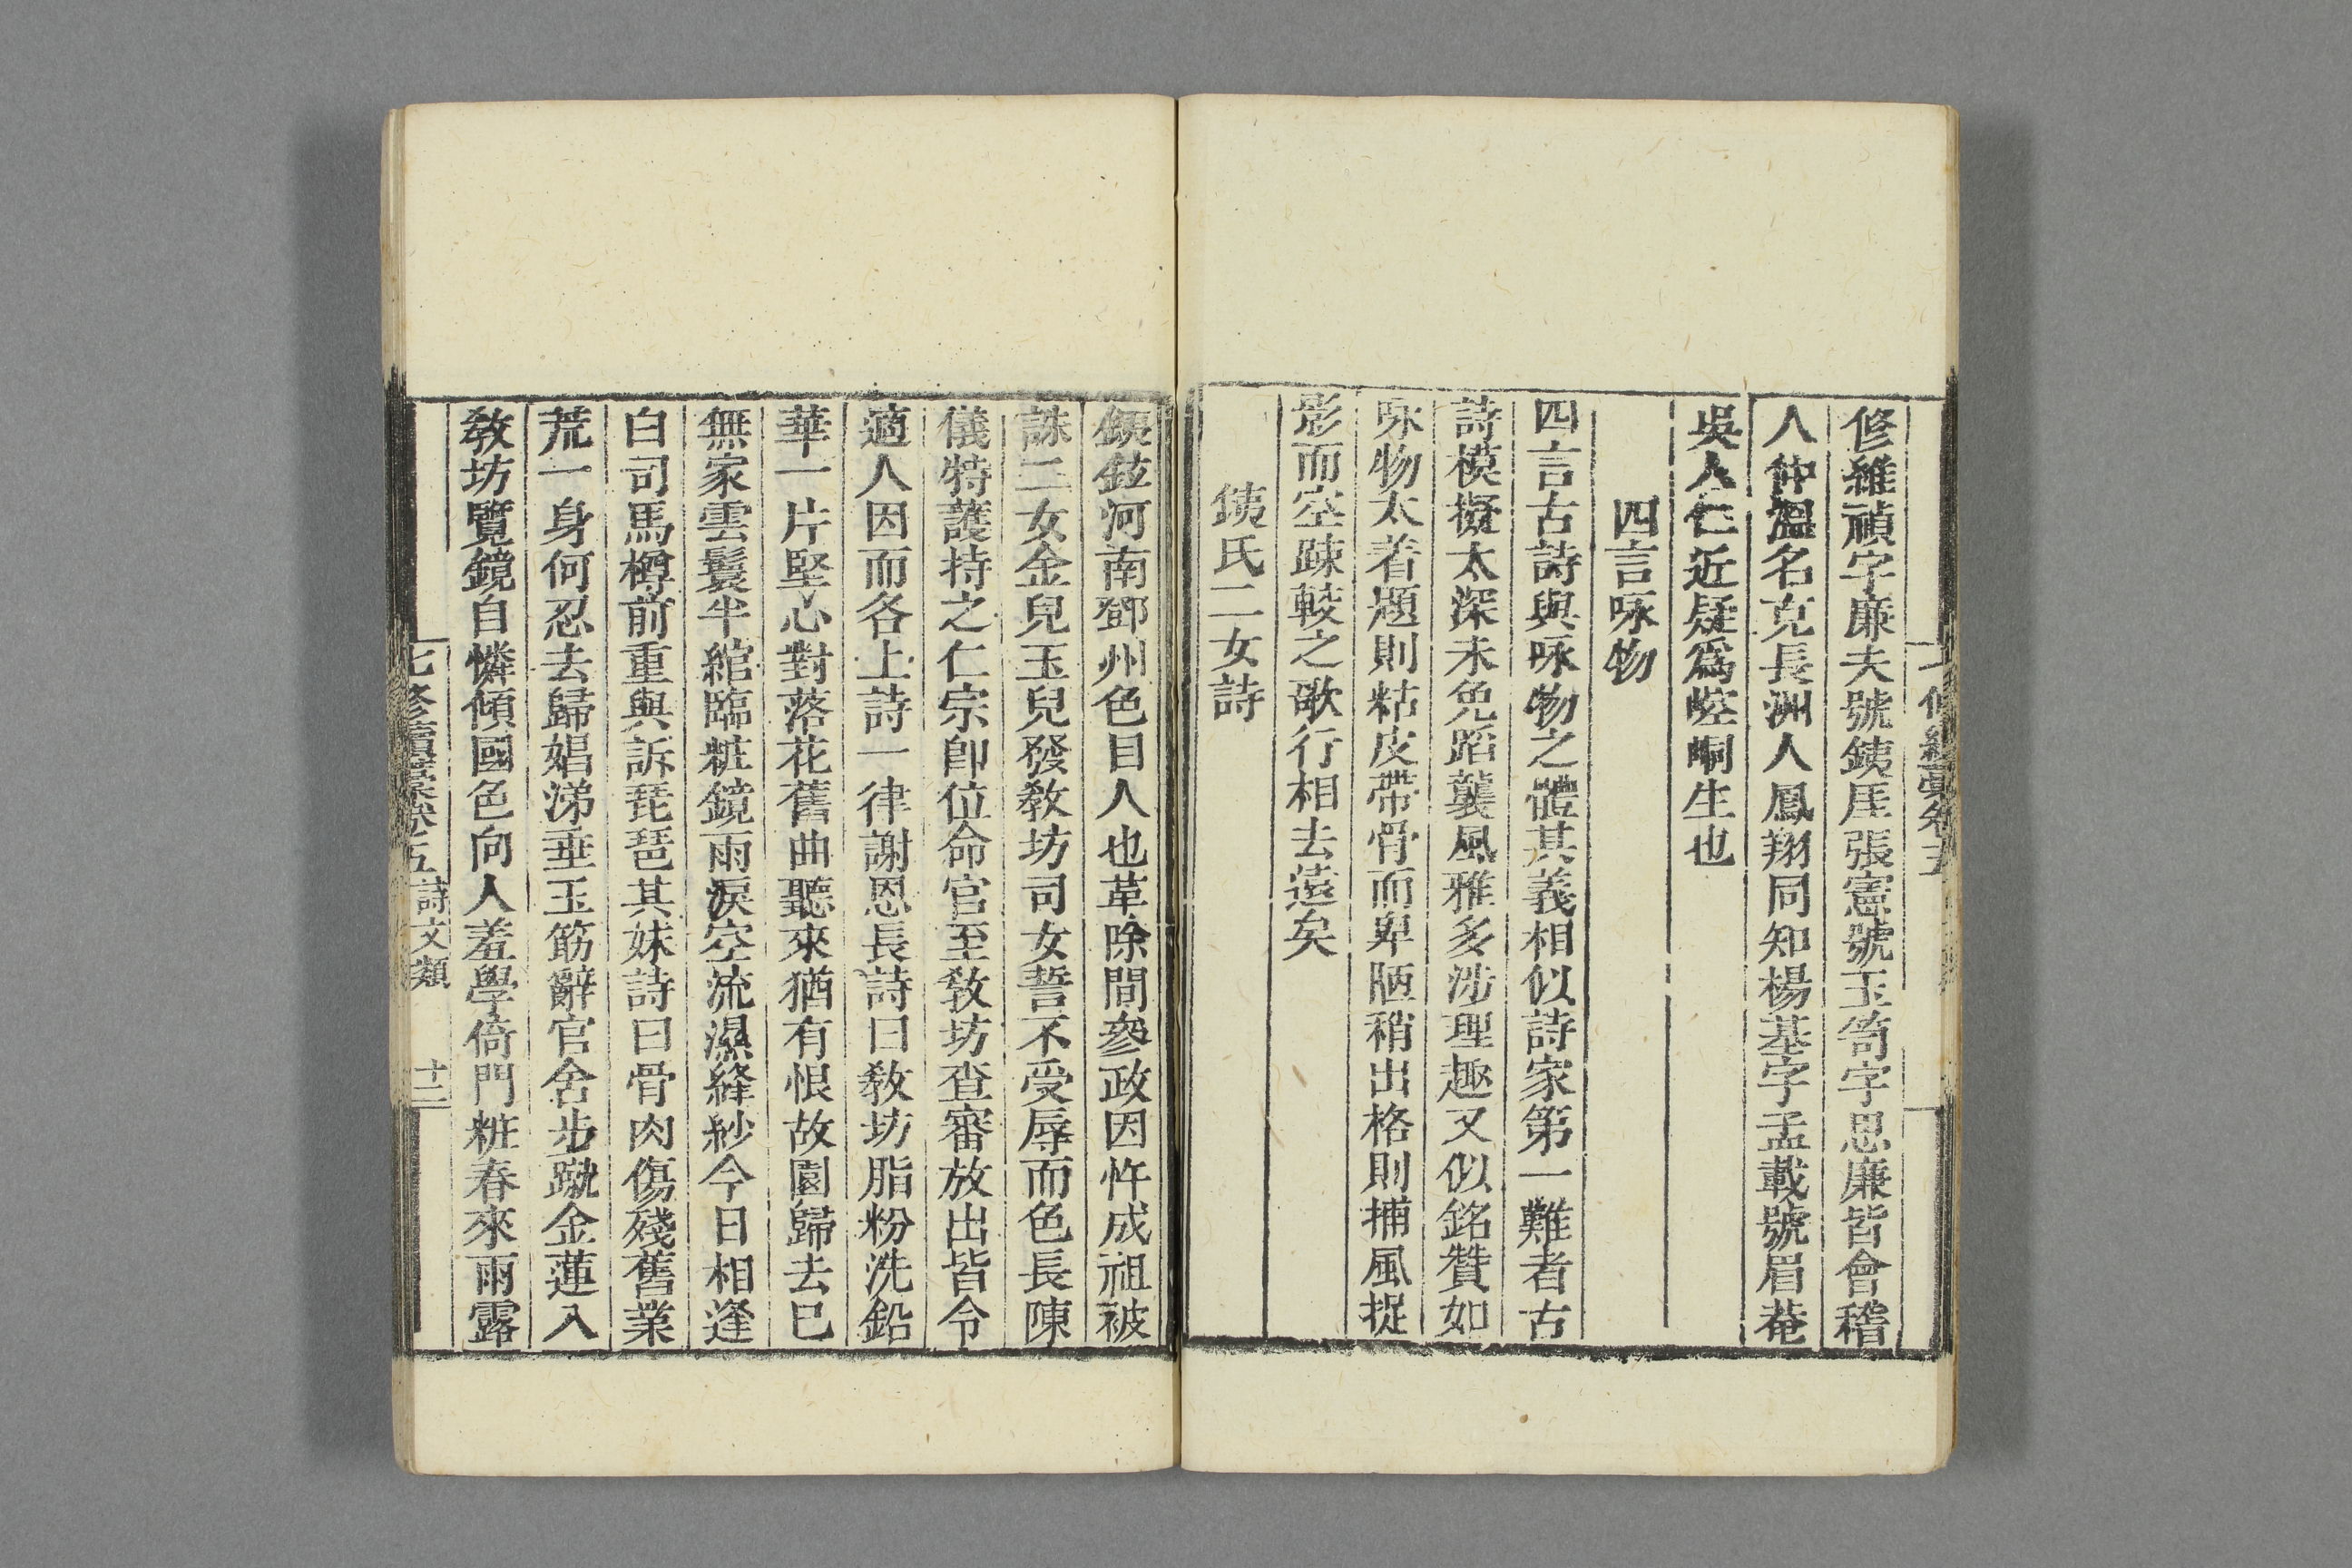 修維禎字廉夫號銕厓張憲號玉笥字思廉皆會稽
人仲溫名克長洲人鳳翔同知楊基字孟載號眉菴
吳人仁近疑爲崆峒生也
四言咏物
四言古詩與咏物之體其義相似詩家第一難者古
詩模擬太深未免蹈襲風雅多涉理趣又似銘贊如
咏物太着題則粘皮帶骨而卑陋稍出格則捕風捉
影而空疎較之歌行相去遠矣
銕氏二女詩
銕鉉河南鄧州色目人也革除間參政因忤成祖被
誅二女金兒玉兒發敎坊司女誓不受辱而色長陳
儀特護持之仁宗卽位命官至敎坊查審放出皆令
適人因而各上詩一律謝恩長詩曰敎坊脂粉洗鉛
華一片堅心對落花舊曲聽來猶有恨故園歸去巳
無家雲鬟半綰臨粧鏡雨淚空流濕絳紗今日相逢
白司馬樽前重與訴琵琶其妹詩曰骨肉傷殘舊業
荒一身何忍去歸娼涕垂玉筯辭官舍步蹴金蓮入
敎坊覽鏡自憐傾國色向人羞學倚門粧春來雨露
七修續稾卷五 詩文類 十二